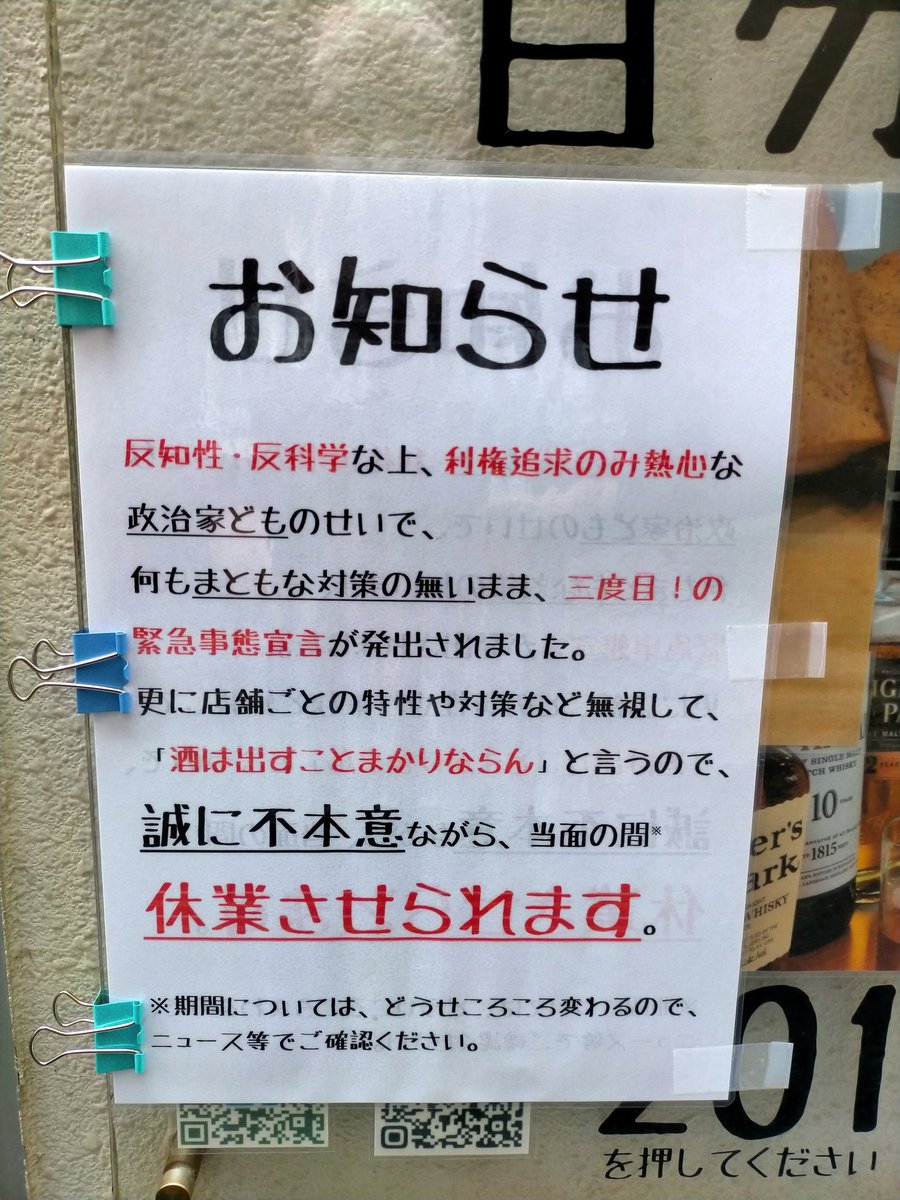 お知らせ
反知性・反科学な上、利権追求のみ熱心な
政治家どものせいで、
何もまともな対策の無いまま、三度目！の
緊急事態宣言が発出されました。
更に店舗ごとの特性や対策など無視して、
「酒は出すことまかりならん」と言うので、
誠に不本意ながら、当面の間※
休業させられます。
※期間については、どうせころころ変わるので、
ニュース等でご確認ください。
SINGLE MALT
SCOTCH WHISKY
10 YEARS
1815
WHISKY
201
を押してください